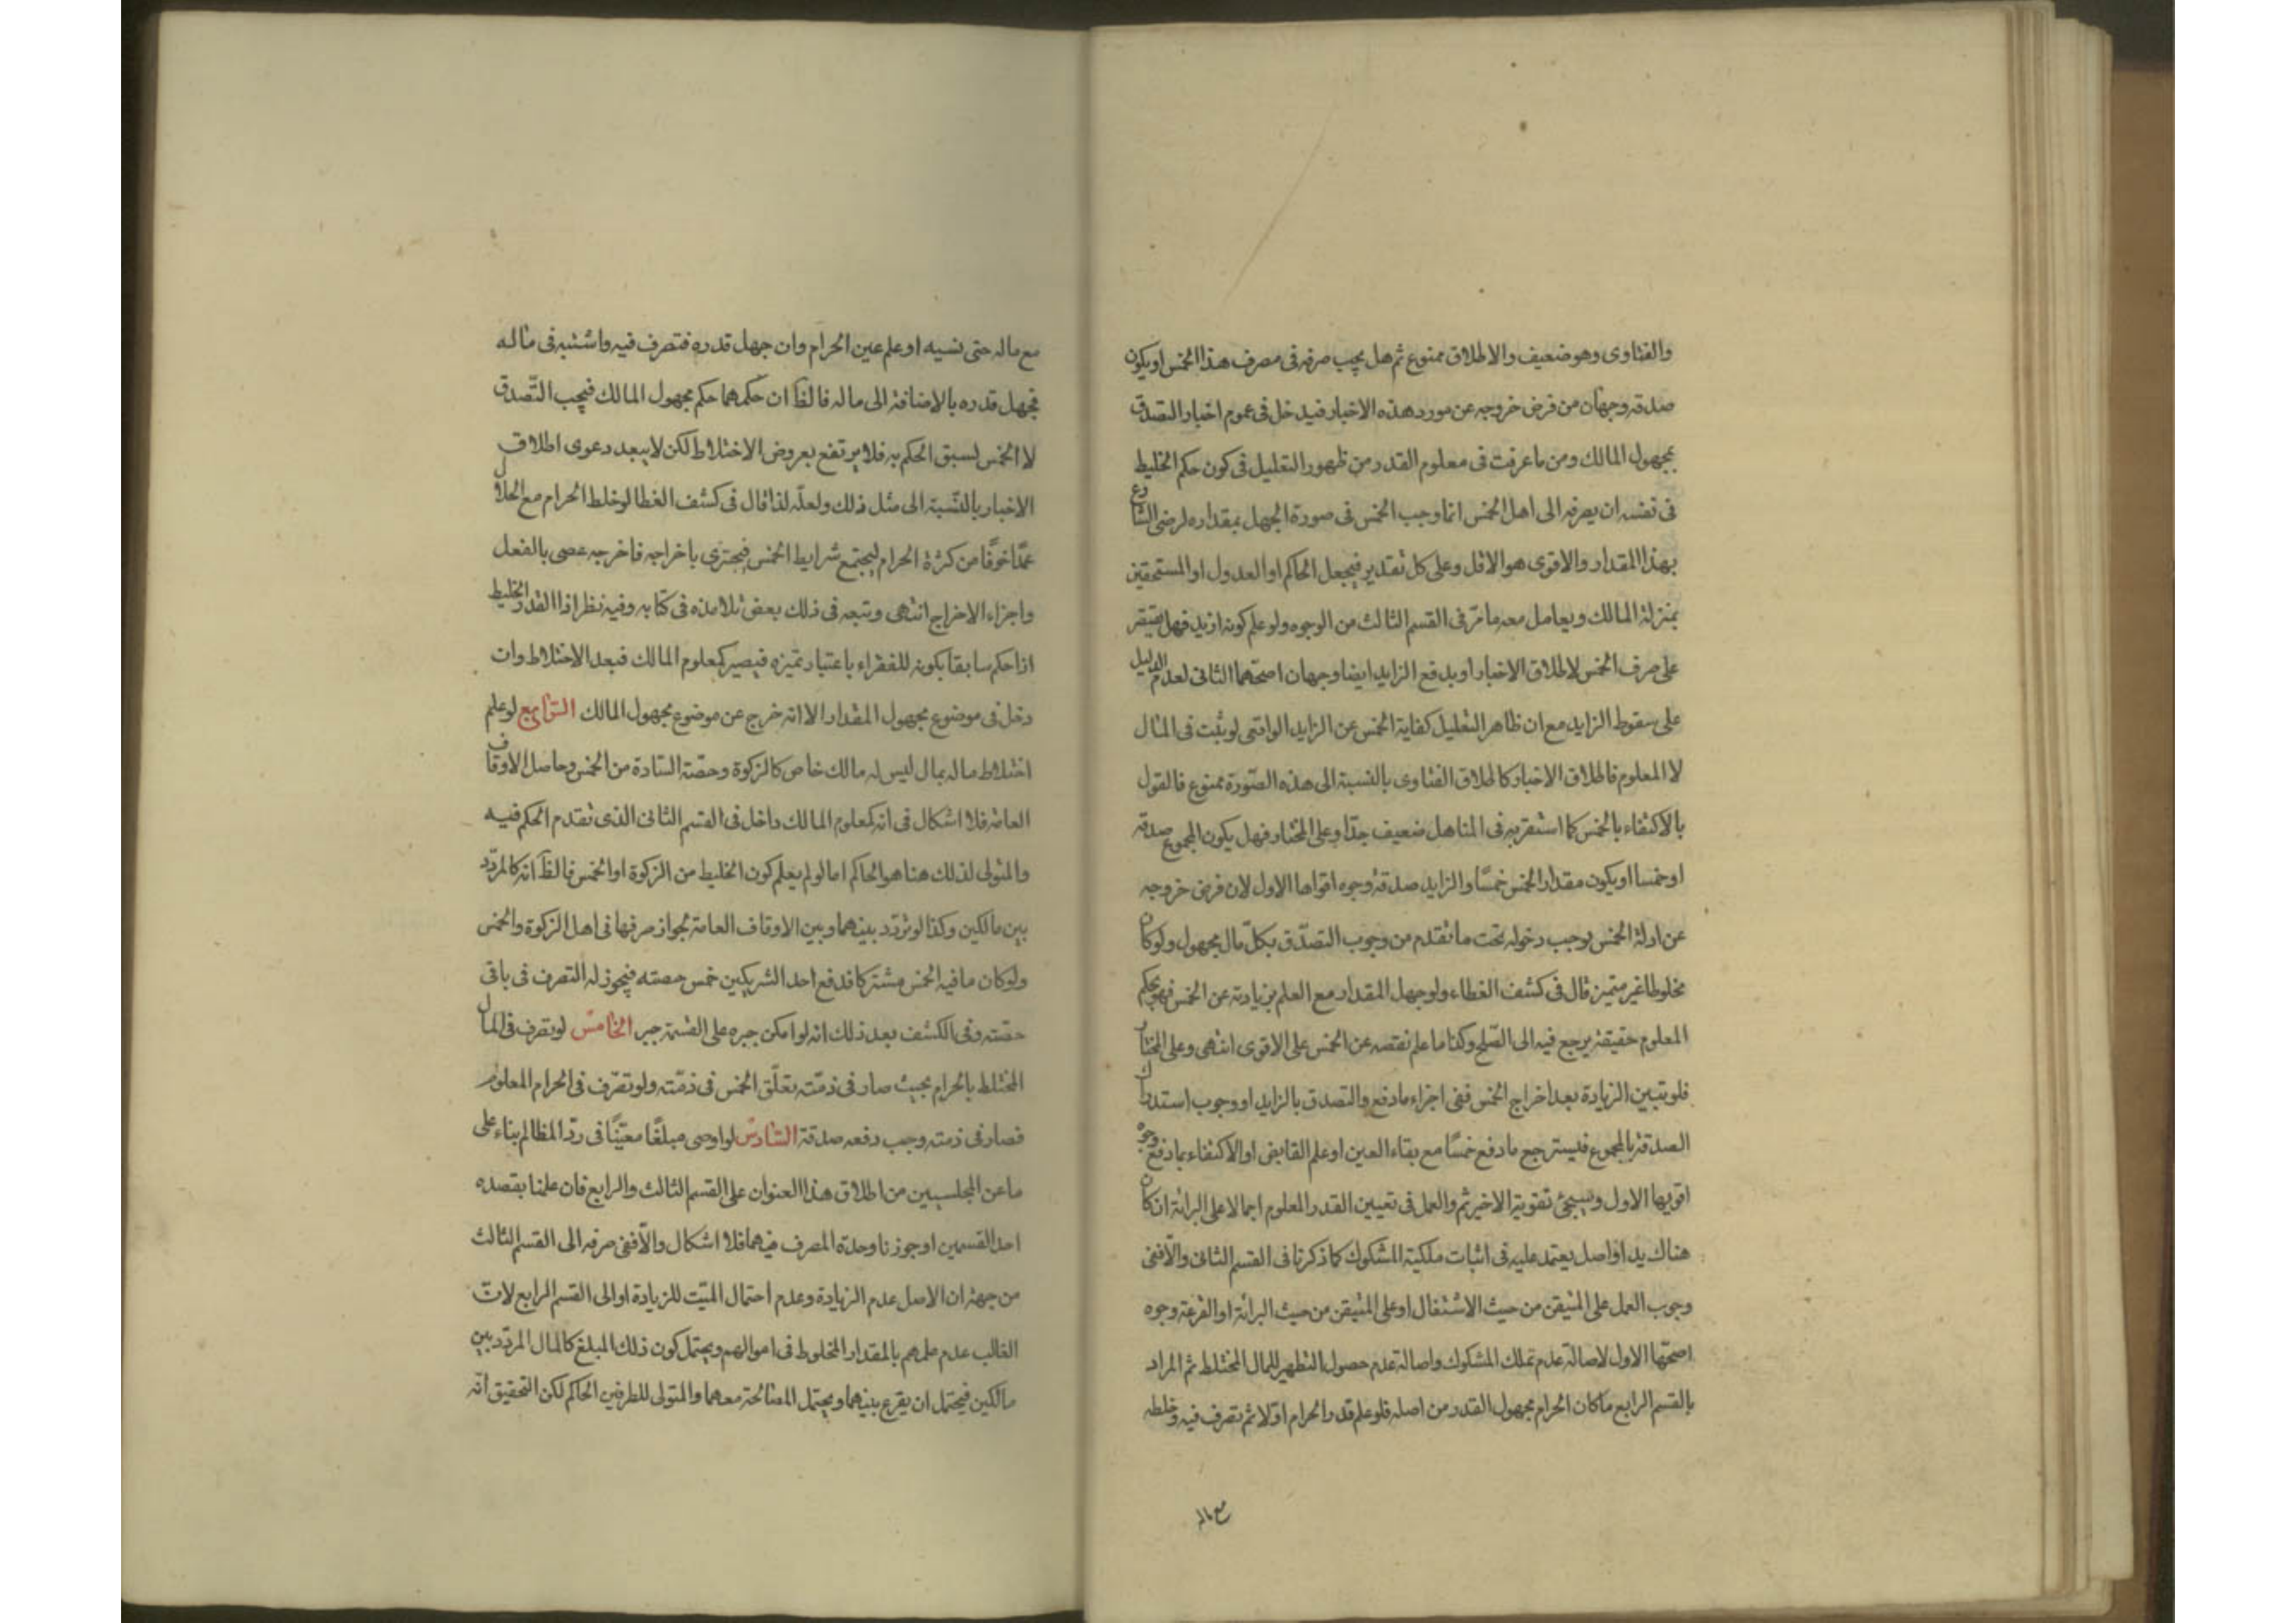 والفتاوى وهو ضعيف والاطلاق ممنوع ثم هل يجب صرفه فى مصرف هذا الخمس او يكون
صدقة وجهان من فرض خروجه عن مورد هذه الاخبار فيدخل فى عموم اخبار التصدق
بمجهول المالك ومن ما عرفت فى معلوم القدر من ظهور التعليل فى كون حكم الخليط
فى نفسه ان يصرفه الى اهل الخمس انما وجب الخمس فى صورة الجهل بمقداره لرضى الشارع
بهذا المقدار والاقوى هو الاول وعلى كل تقدير فيجعل الحاكم او العدول او المستحقين
بمنزلة المالك ويعامل معه ما مرّ فى القسم الثالث من الوجوه ولو علم كونه ازيد فهل يقتصر
على صرف الخمس لاطلاق الاخبار او يدفع الزايد ايضا وجهان اصحّهما الثانى لعدم الدليل
على سقوط الزايد مع ان ظاهر التعليل كفاية الخمس عن الزايد الواقعى لو ثبت فى المال
لا المعلوم فاطلاق الاخبار كاطلاق الفتاوى بالنسبة الى هذه الصّورة ممنوع فالقول
بالاكتفاء بالخمس كما استقربه فى المناهل ضعيف جدّا وعلى المختار فهل يكون المجموع صدقة
او خمسا او يكون مقدار الخمس خمسًا والزايد صدقة وجوه اقواها الاول لان فرض خروجه
عن ادلة الخمس يوجب دخوله تحت ما تقدم من وجوب التصدّق بكلّ مال مجهول ولو كان
مخلوطا غير متميز قال فى كشف الغطاء ولو جهل المقدار مع العلم بزيادته عن الخمس فهو بحكم
المعلوم حقيقة يرجع فيه الى الصّلح وكذا ما علم نقصه عن الخمس على الاقوى انتهى وعلى المختار
فلو تبين الزيادة بعد اخراج الخمس ففى اجزاء ما دفع والتصدق بالزايد او وجوب استدراك
الصدقة بالمجموع فيسترجع ما دفع خمسًا مع بقاء العين او علم القابض او الاكتفاء بما دفع وجوه
اقويها الاول وسيجئ تقوية الاخير ثم والعمل فى تعيين القدر المعلوم اجمالا على البرائة ان كان
هناك يد او اصل يعتمد عليه فى اثبات ملكية المشكوك كما ذكرنا فى القسم الثانى والّا ففى
وجوب العمل على المتيقن من حيث الاشتغال او على المتيقن من حيث البرائة او القرعة وجوه
اصحّها الاول لاصالة عدم تملك المشكوك واصالة عدم حصول التطهير للمال المختلط ثم المراد
بالقسم الرابع ما كان الحرام مجهول القدر من اصله فلو علم قدر الحرام اوّلا ثم تصرف فيه وخلطه
مع ماله
مع ماله حتى نسيه او علم عين الحرام وان جهل قدره فتصرف فيه واشتبه فى ماله
فجهل قدره بالاضافة الى ماله فالظ ان حكمهما حكم مجهول المالك فيجب التّصدق
لا الخمس لسبق الحكم به فلا يرتفع بعروض الاختلاط لكن لا يبعد دعوى اطلاق
الاخبار بالنّسبة الى مثل ذلك ولعلّه لذا قال فى كشف الغطا لو خلط الحرام مع الحلال
عمدًا خوفًا من كثرة الحرام ليجتمع شرايط الخمس فيجتزى باخراجه فاخرجه عصى بالفعل
واجزاء الاخراج انتهى وتبعه فى ذلك بعض تلامذه فى كتابه وفيه نظر اذا القدر الخليط
اذا حكم سابقا بكونه للفقراء باعتبار تميزه فيصير كمعلوم المالك فبعد الاختلاط وان
دخل فى موضوع مجهول المقدار الا انه خرج عن موضوع مجهول المالك الرّابع لو علم
اختلاط ماله بمال ليس له مالك خاص كالزكوة وحصّة السّادة من الخمس وحاصل الاوقاف
العامة فلا اشكال فى انه كمعلوم المالك داخل فى القسم الثانى الذى تقدم الحكم فيه
والمتولى لذلك هنا هو الحاكم اما لو لم يعلم كون الخليط من الزكوة او الخمس فالظ انه كالمردّد
بين مالكين وكذا لو تردّد بينهما وبين الاوقاف العامة لجواز صرفها فى اهل الزكوة والخمس
ولو كان ما فيه الخمس مشتركا فدفع احد الشريكين خمس حصته فيجوز له التصرف فى باقى
حصّته وفى الكشف بعد ذلك انه لو امكن جبره على القسمة جبر الخامس لو تصرف فى المال
المختلط بالحرام بحيث صار فى ذمّته تعلّق الخمس فى ذمّته ولو تصّرف فى الحرام المعلوم
فصار فى ذمته وجب دفعه صدقة السّادس لو اوصى مبلغًا معيّنًا فى ردّ المظالم بناء على
ما عن المجلسيين من اطلاق هذا العنوان على القسم الثالث والرابع فان علمنا بقصده
احد القسمين او جوزنا وحدة المصرف فيهما فلا اشكال والّا ففى صرفه الى القسم الثالث
من جهة ان الاصل عدم الزيادة وعدم احتمال الميّت للزيادة او الى القسم الرابع لانّ
الغالب عدم علمهم بالمقدار المخلوط فى اموالهم ويحتمل كون ذلك المبلغ كالمال المردّد بين
مالكين فيحتمل ان يقرع بينهما ويحتمل المصالحة معهما والمتولى للطرفين الحاكم لكن التحقيق انّه